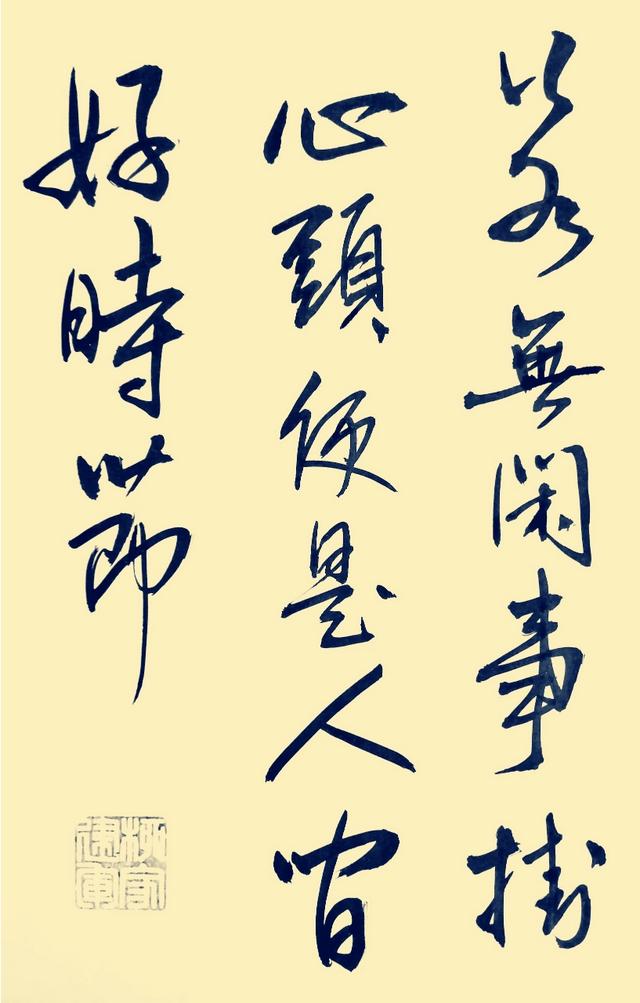 若無閑事掛
心頭便是人間
好時節